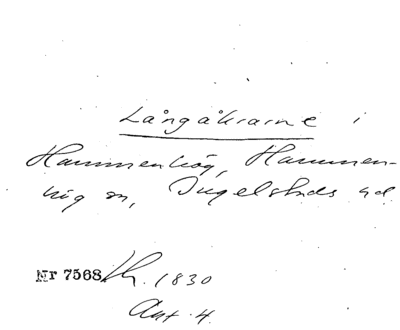 Långåkrarne i
Hammenhög, Hammen-
hög sn, Ingelstads hd
Nr 7568 Th. 1830
Akt. 4.